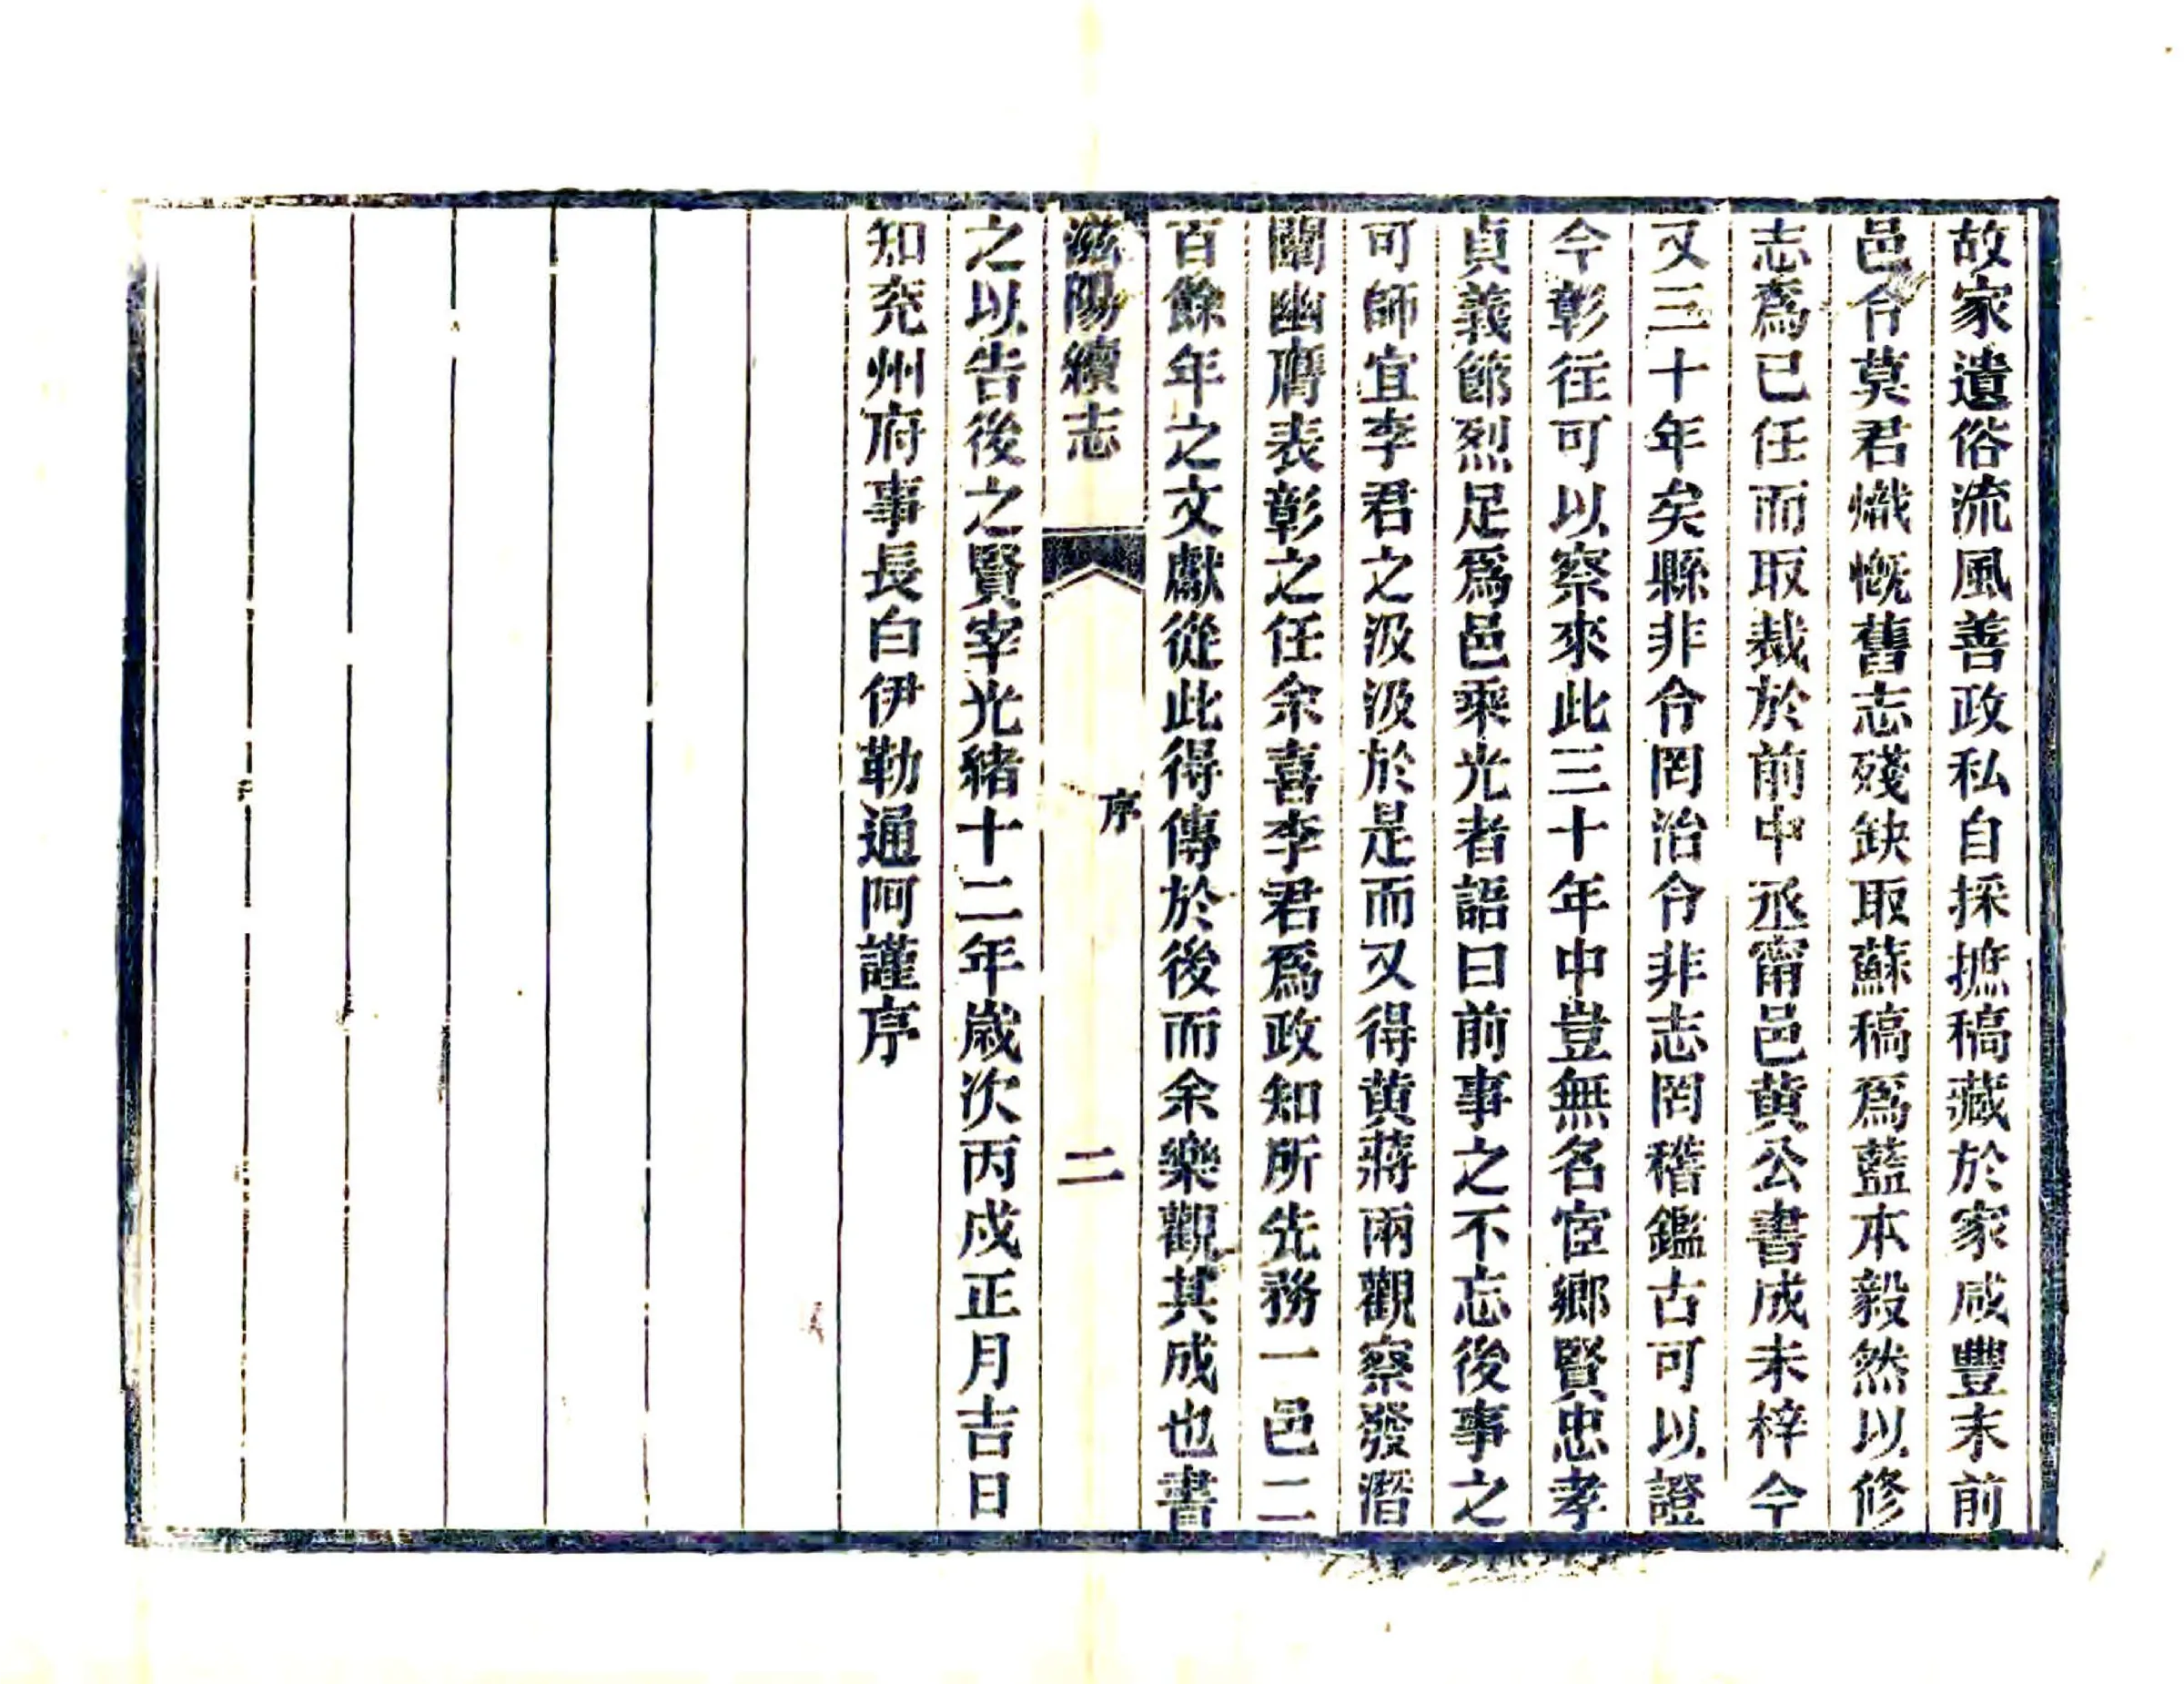 故家遺俗流風善政私自採摭稿藏於家咸豐末前
邑令莫君熾慨舊志殘缺取蘇稿爲藍本毅然以修
志爲已任而取裁於前中丞甯邑黄公書成未梓今
又三十年矣縣非令罔治令非志罔稽鑑古可以證
今彰往可以察來此三十年中豈無名宦鄉賢忠孝
貞義節烈足爲邑乘光者語曰前事之不忘後事之
可師宜李君之汲汲於是而又得黄蔣兩觀察發潛
闡幽膺表彰之任余喜李君爲政知所先務一邑二
百餘年之文獻從此得傳於後而余樂觀其成也書
滋陽續志
序
二
之以告後之賢宰光緒十二年歲次丙戌正月吉日
知兖州府事長白伊勒通阿謹序